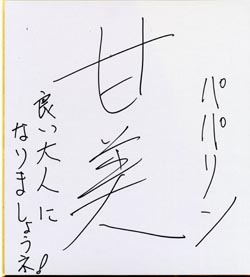 パパリン
甘美
良い大人に
なりましょうネ!